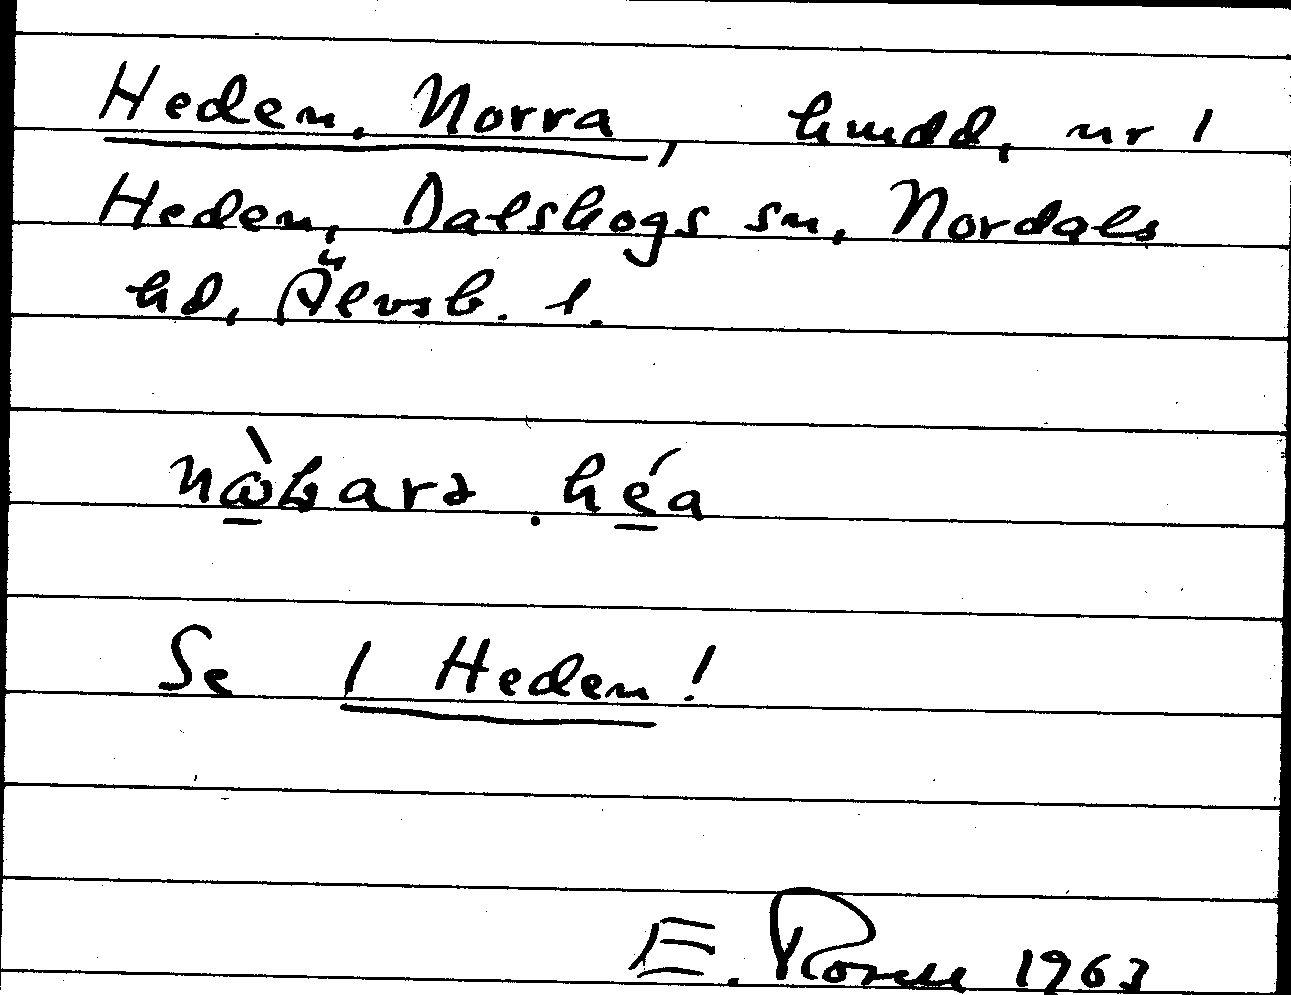 Heden, Norra, hmdd, nr 1
Heden, Dalskogs sn, Nordals
hd, Älvsb. l.
.héa
Se 1 Heden!
E. 1963